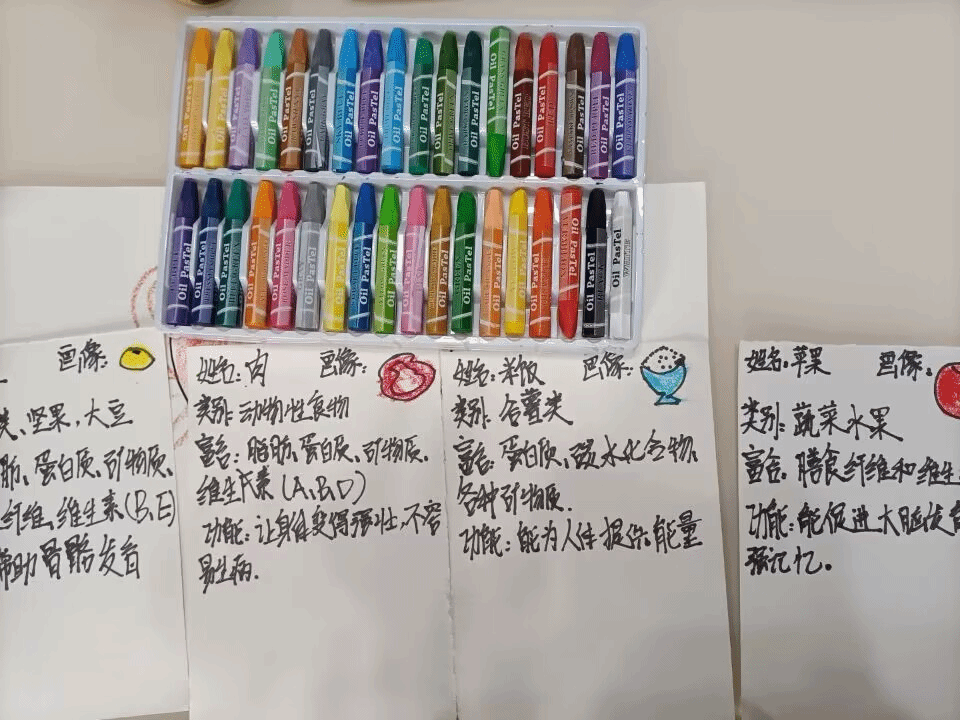 Oil PasTel
画像:
类、坚果,大豆
肪、蛋白质、矿物质、
纤维、维生素(B、E)
帮助骨骼发育
姓名:肉 画像:
类别:动物性食物
富含:脂肪、蛋白质、矿物质、
维生素(A、B、D)
功能:让身体变得强壮,不容
易生病.
姓名:米饭 画像:
类别:谷薯类
富含:蛋白质、碳水化合物、
各种矿物质.
功能:能为人体提供能量
姓名:苹果 画像:
类别:蔬菜水果
富含:膳食纤维和维生
功能:能促进大脑发育
强记忆。